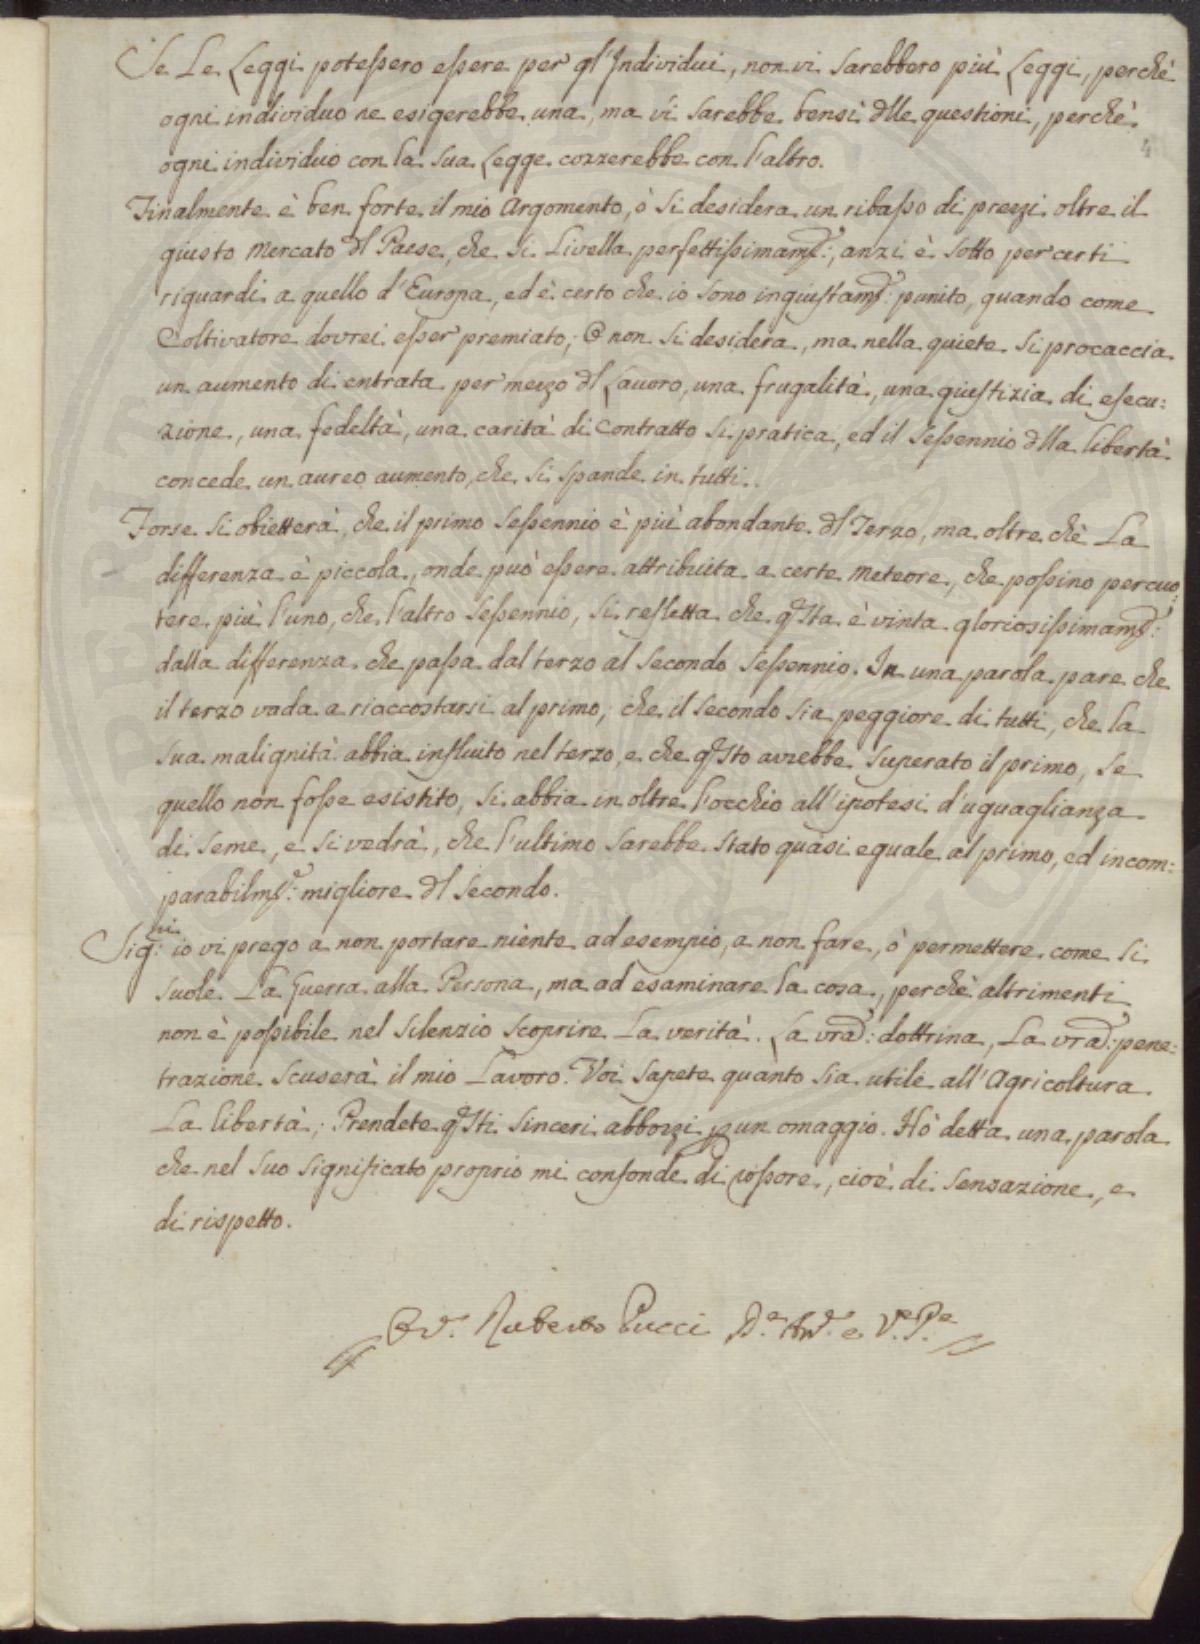 Se Le Leggi potessero essere per gl'Individui, non vi sarebbero più Leggi, perchè
ogni individuo ne esigerebbe una, ma vi sarebbe bensì dlle questioni, perchè
ogni individuo con la sua Legge cozzerebbe con l'altro.
Finalmente è ben forte il mio Argomento, ò si desidera un ribasso di prezzi oltre il
giusto mercato dl Paese, che si Livella perfettissimamte:, anzi è sotto per certi
riguardi a quello d'Europa, ed è certo che io sono ingiustamte: punito, quando come
Coltivatore dovrei esser premiato; O non si desidera, ma nella quiete si procaccia
un aumento di entrata per mezzo dl Lavoro, una frugalità, una giustizia di esecu:
zione, una fedeltà, una carità di Contratto si pratica, ed il Sessennio dlla libertà
concede un aureo aumento, che si spande in tutti.
Forse si obietterà, che il primo Sessennio è più abondante dl Terzo, ma oltre chè La
differenza è piccola, onde può essere attribuita a certe meteore, che possino percuo:
tere più l'uno, che l'altro Sessennio, si refletta che qsta è vinta gloriosissimamte:
dalla differenza che passa dal terzo al Secondo Sessennio. In una parola pare che
il terzo vada a riaccostarsi al primo; che il secondo sia peggiore di tutti, che la
sua malignità abbia influito nel terzo, e che qsto avrebbe superato il primo, se
quello non fosse esistito, si abbia in oltre l'occhio all'ipotesi d'uguaglianza
di seme, e si vedrà, che l'ultimo sarebbe stato quasi eguale al primo, ed incom:
parabilmte: migliore dl secondo.
Sigri: io vi prego a non portare niente ad esempio, a non fare, ò permettere come si
suole La Guerra alla Persona, ma ad esaminare la cosa, perchè altrimenti
non è possibile nel silenzio scoprire La verità. La vra: dottrina, La vra: pene:
trazione scuserà il mio Lavoro. Voi sapete quanto sia utile all'Agricoltura
La libertà; Prendete qsti sinceri abbozzi p un omaggio. Hò detta una parola
che nel suo significato proprio mi confonde di rossore, cioè di sensazione, e
di rispetto.
Ruberto Pucci